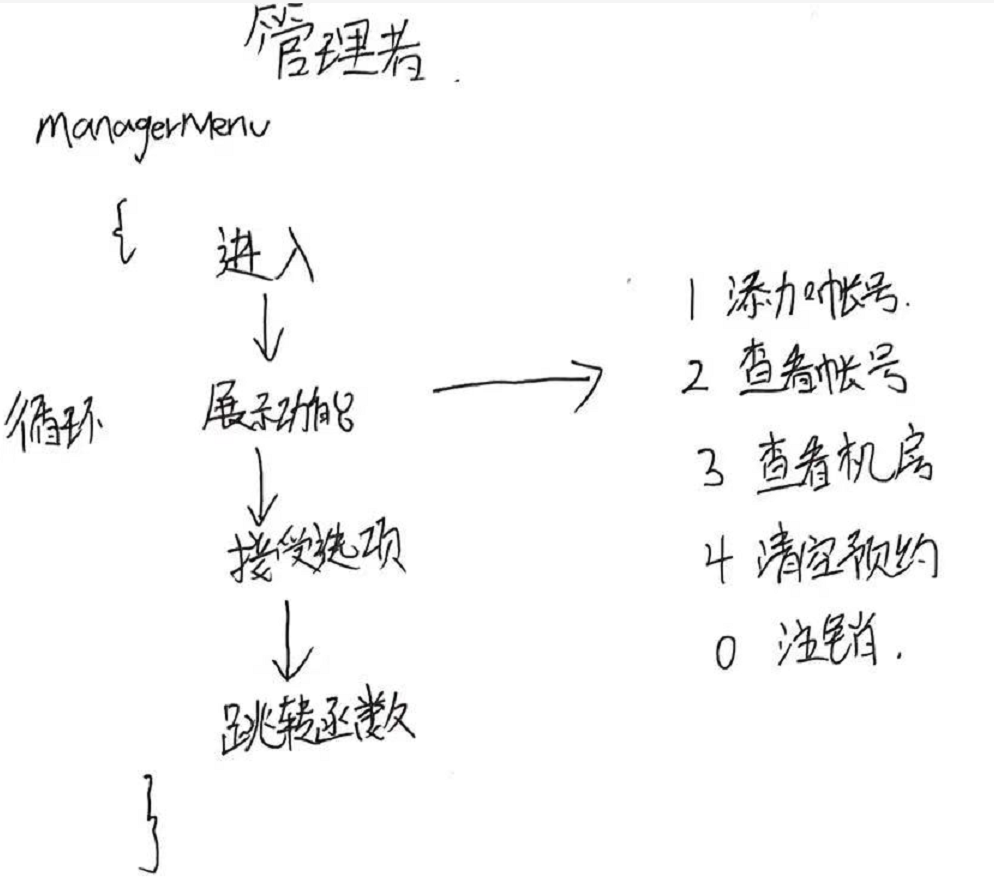 管理者.
managerMenu
{
进入
循环
展示功能
接受选项
跳转函数
}
1 添加帐号.
2 查看帐号
3 查看机房
4 清空预约
0 注销.